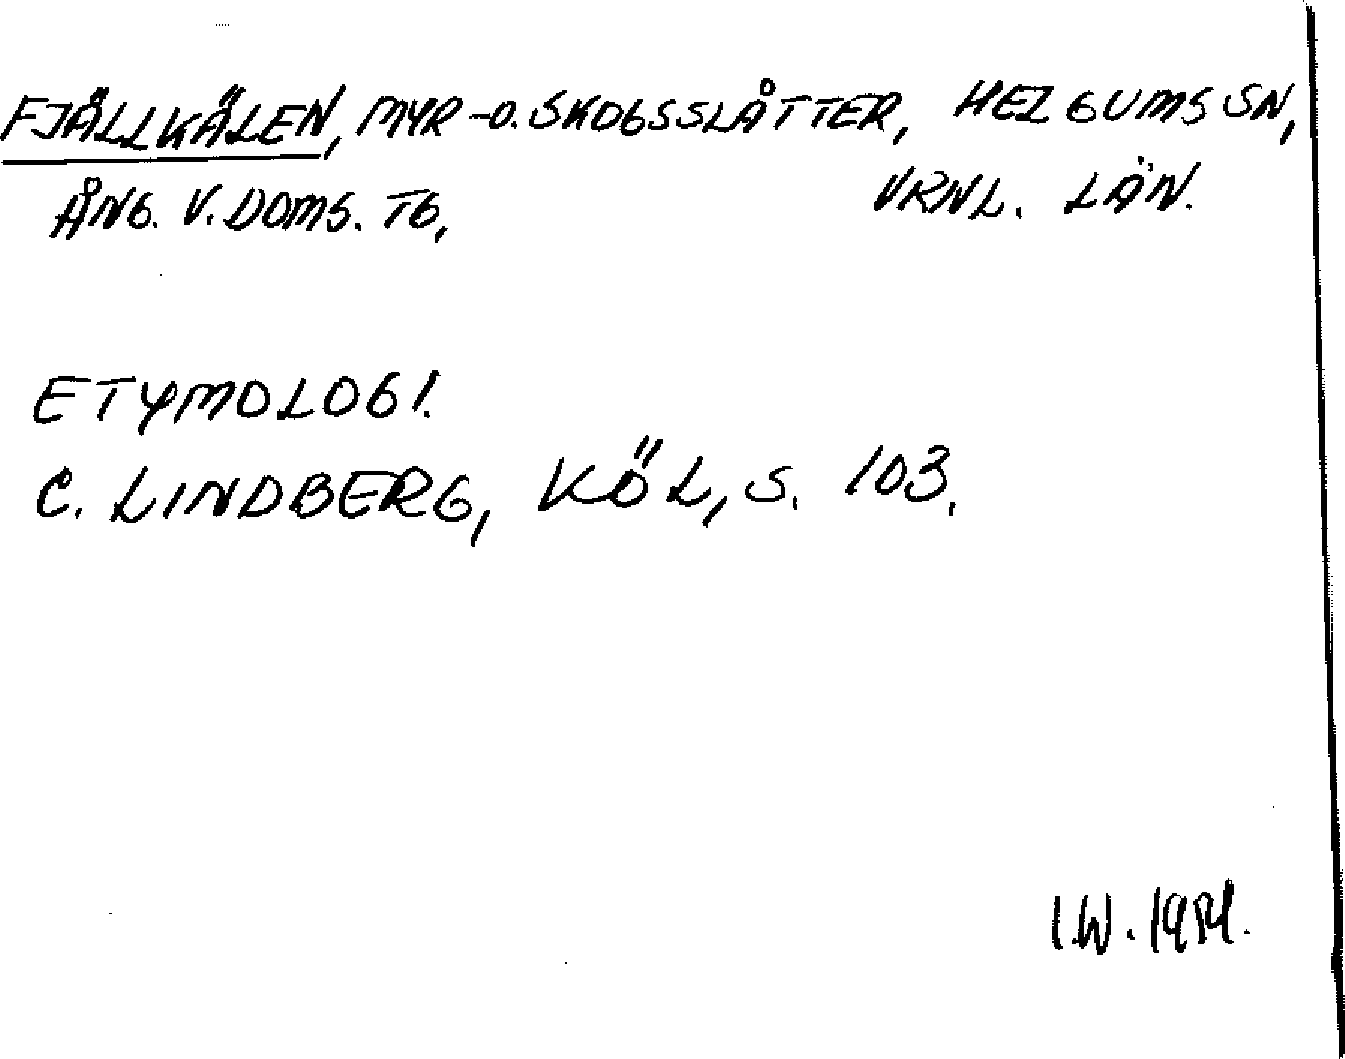 FJÄLLKÄLEN, MYR-O. SKOGSSLÅTTER, HELGUMS SN,
ÅNG. V. DOMS. TG, VRNL. LÄN.
ETYMOLOGI.
C. LINDBERG, KÖL, S. 103.
I.W.